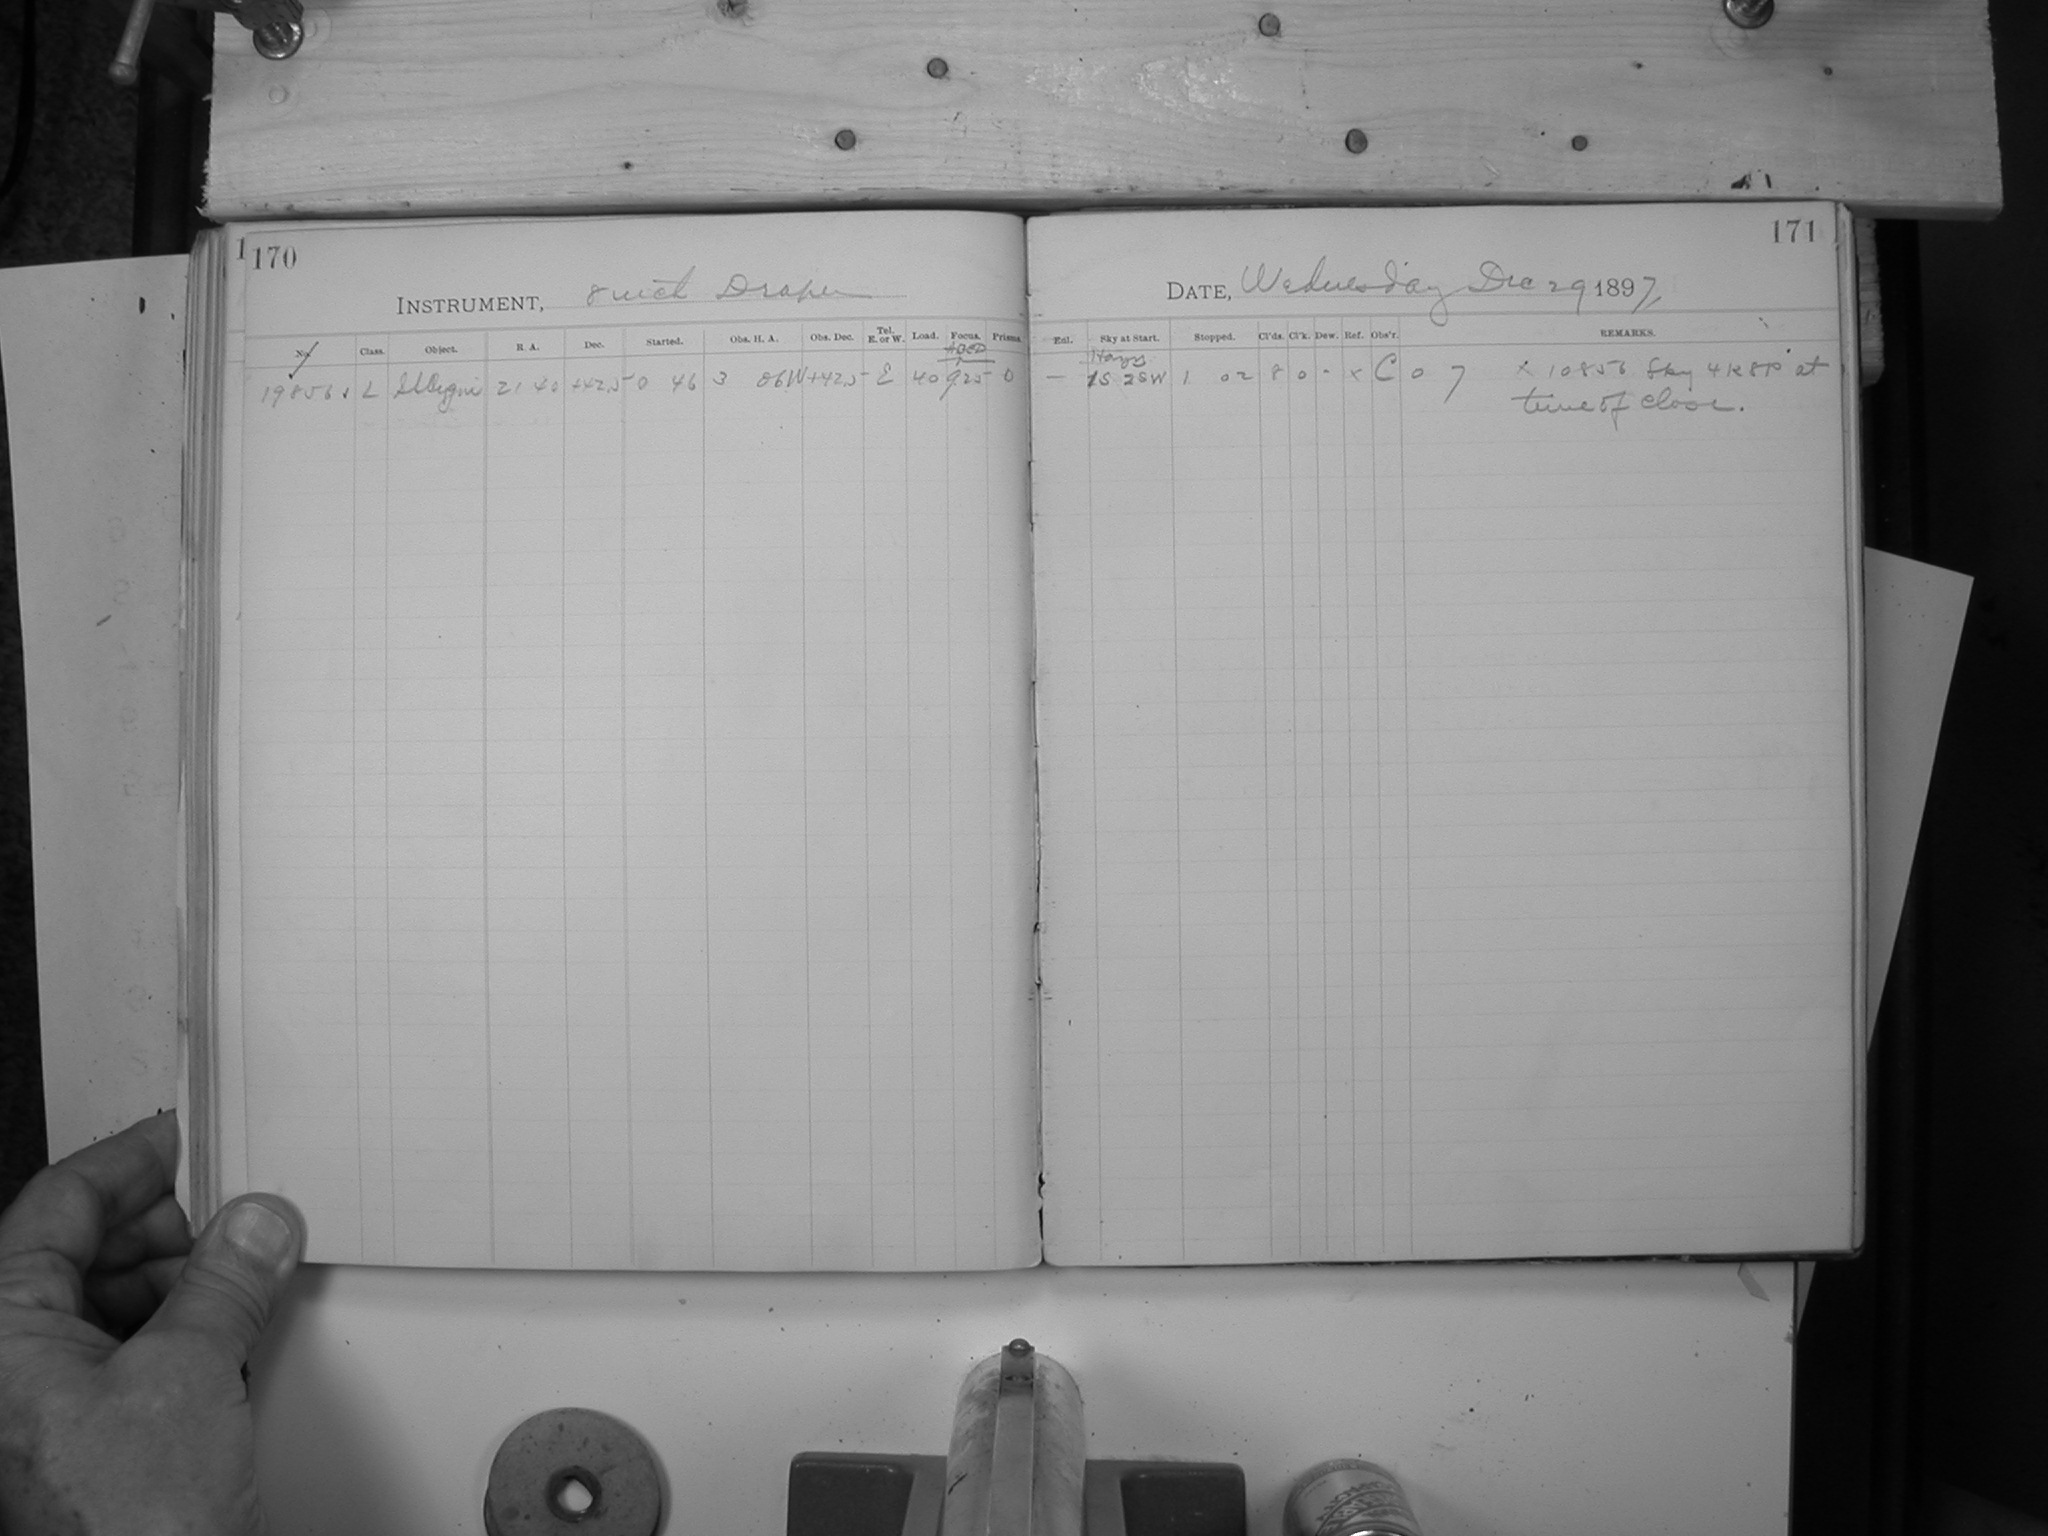 1 170
INSTRUMENT, 8 inch Draper
No. Class. Object. R. A. Dec. Started. Obs. H. A. Obs. Dec. Tel. E. or W. Load. Focus. Prisms.
ABCD
19856 L SSCygni 21 40 +42.5 0 46 3 06W +42.5 E 40 925 0
171
DATE, Wednesday Dec 29 1897,
Enl. Sky at Start. Stopped. Cl'ds. Cl'k. Dew. Ref. Obs'r. REMARKS.
Hazy
— 1S 2SW 1 02 8 0 - x C 0 7 x 10856 Sky at
time of close.